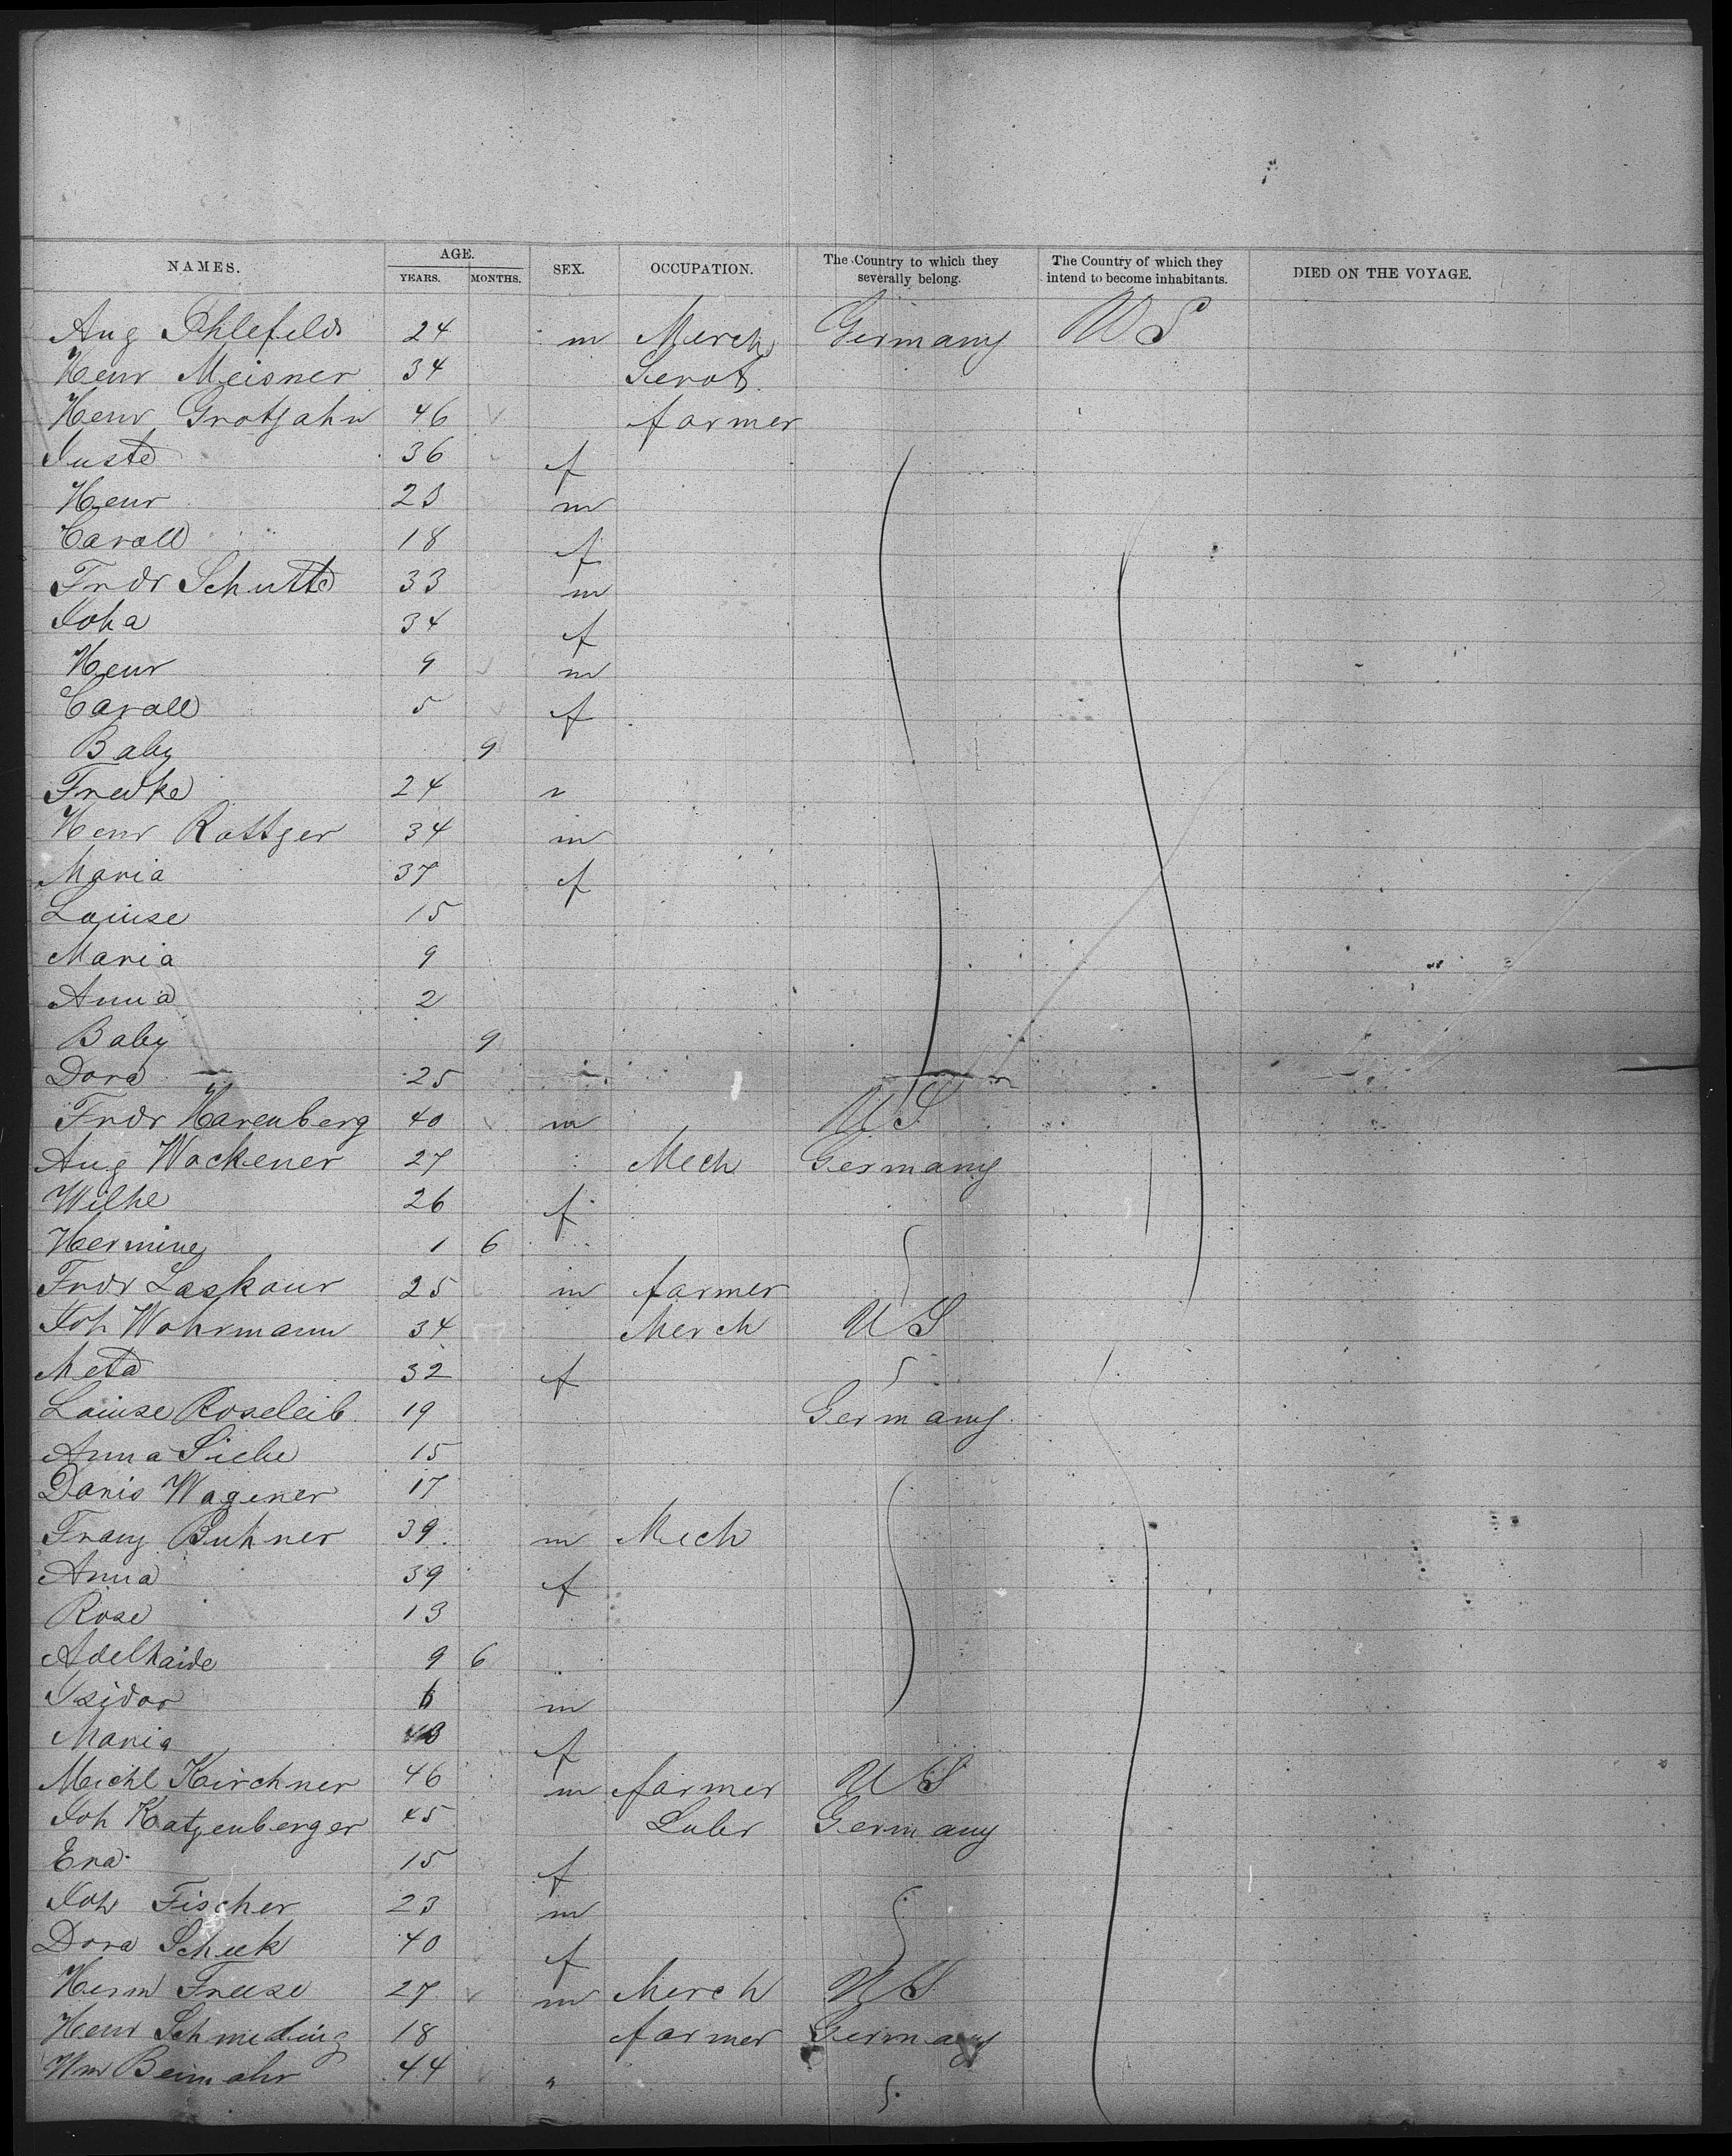 NAMES. AGE. YEARS. MONTHS. SEX. OCCUPATION. The Country to which they severally belong. The Country of which they intend to become inhabitants. DIED ON THE VOYAGE.
Aug Ohlefelds 24 m Merch Germany US
Henr Meisner 34
Henr Grotjahn 46 farmer
Juste 36 f
Henr 23 m
Caroll 18 f
Frdr Schutte 33 m
Joha 34 f
Henr 9 m
Caroll 5 f
Baby 9
Fredke 24
Henr Rottger 34 m
Maria 37 f
Louise 15
Maria 9
Anna 2
Baby 9
Dora 25
Frdr Harenberg 40 m US
Aug Wockener 27 Mech Germany
Wilhe 26 f
Hermine 1 6
Frdr Laskour 25 m farmer
Joh Wohrmann 34 Merch US
Meta 32 f
Louise Roseleib 19 Germany
Anna Siebe 15
Doris Wagener 17
Franz Buhner 39 m Mech
Anna 39 f
Rose 13
Adelhaide 9 6
Isidor 6 m
Maria f
Michl Kirchner 46 m farmer US
Joh Katzenberger 45 Labr Germany
Eva 15 f
Joh Fischer 23 m
Dora Scheek 40 f
Herm Freese 27 m Merch US
Henr Schmeding 18 farmer Germany
Wm Beimohr 44 "